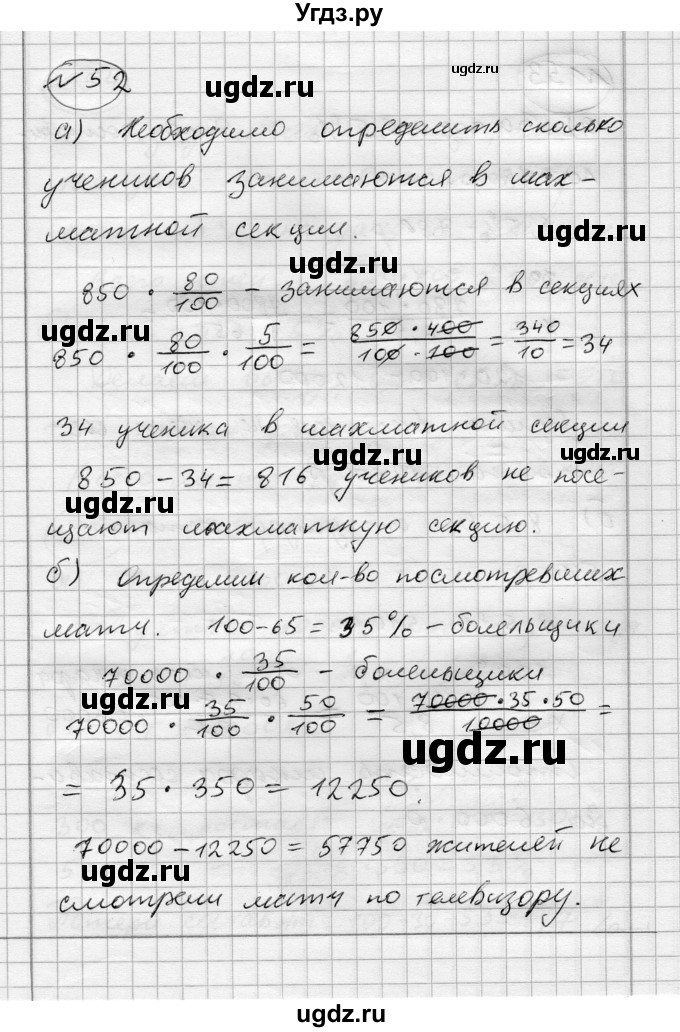 Угдз.ру
N 52
ugdz.ru
ugdz.ru
а) Необходимо определить сколько
учеников занимаются в шах-
ugdz.ru
матной секции.
ugdz.ru
ugdz.ru
850 · 80/100 - занимаются в секциях
ugdz.ru
850 · 80/100 · 5/100 = 850 · 400/100 · 100 = 340/10 = 34
34 ученика в шахматной секции
ugdz.ru
850 - 34 = 816 учеников не посе-
ugdz.ru
щают шахматную секцию.
б) Определим кол-во посмотревших
матч. 100-65 = 35% - болельщики
ugdz.ru
70000 · 35/100 - болельщики
ugdz.ru
70000 · 35/100 · 50/100 = 70000 · 35 · 50/10000 =
ugdz.ru
= 35 · 350 = 12250.
70000 - 12250 = 57750 жителей не
ugdz.ru
смотрели матч по телевизору.
ugdz.ru